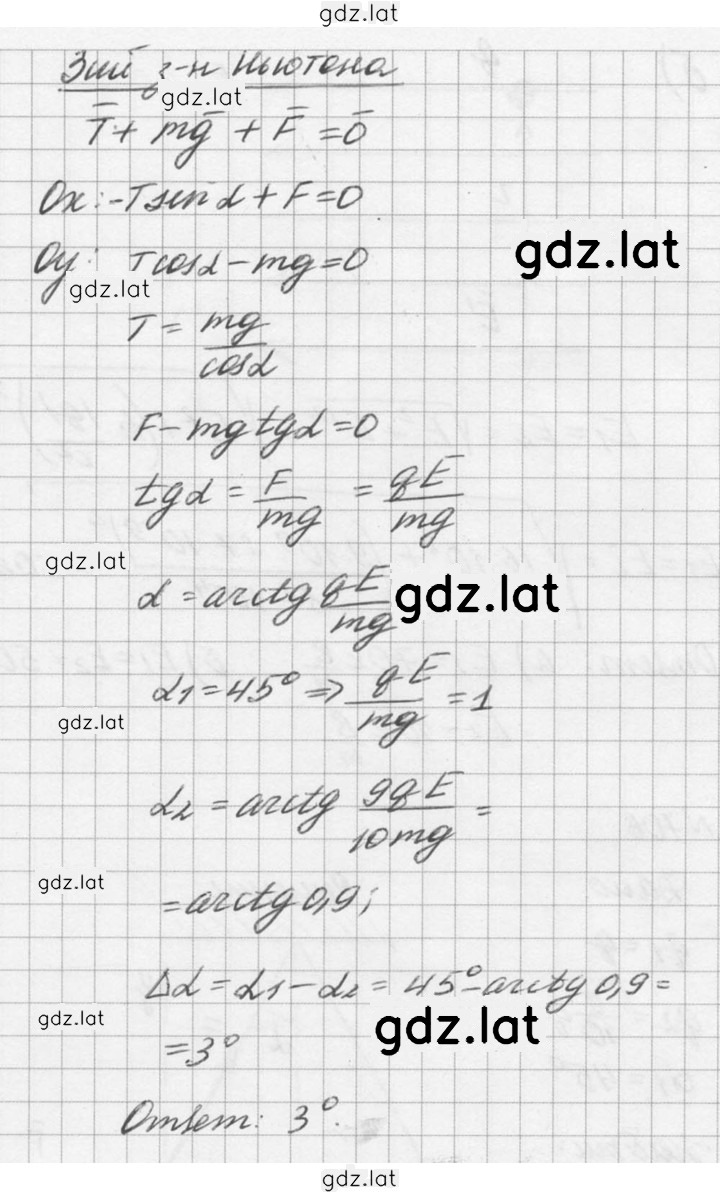 gdz.lat
3ий з-н Ньютона
gdz.lat
T̄ + mḡ + F̄ = 0̄
Ox: -Tsin α + F = 0
gdz.lat
Oy: Tcosα - mg = 0
gdz.lat
T = mg/cosα
F - mg tgα = 0
tgα = F/mg = qE/mg
gdz.lat
α = arctg qE/mg
gdz.lat
α1 = 45° ⇒ qE/mg = 1
gdz.lat
α2 = arctg 9qE/10mg =
gdz.lat
= arctg 0,9;
Δα = α1 - α2 = 45° - arctg 0,9 =
gdz.lat
gdz.lat
= 3°
Ответ: 3°.
gdz.lat